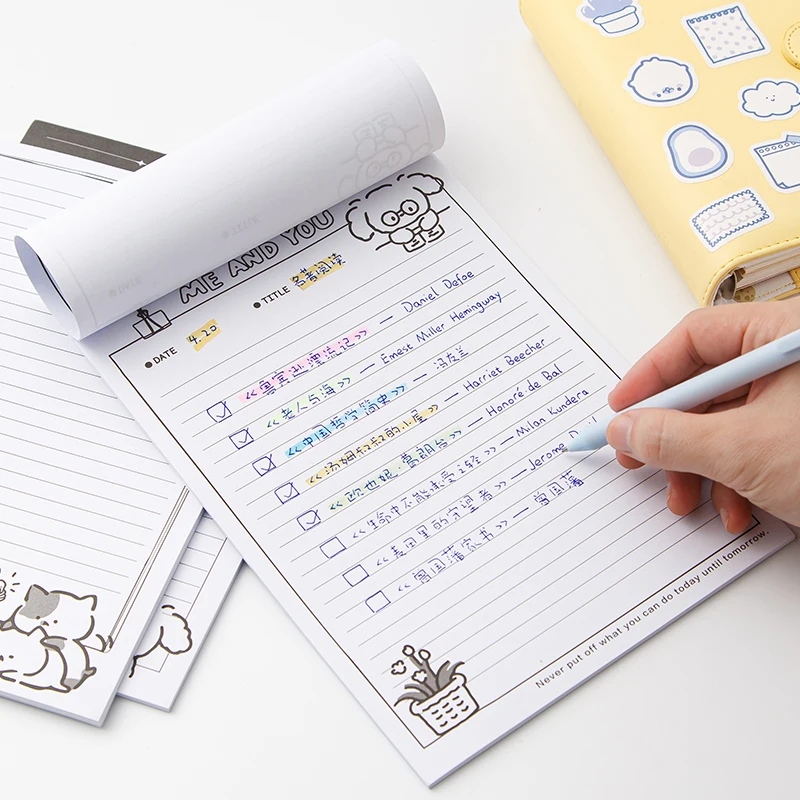 ME AND YOU
DATE 4.20 TITLE 名著阅读
《鲁宾逊漂流记》 — Daniel Defoe
《老人与海》 — Ernest Miller Hemingway
《中国哲学简史》 — 冯友兰
《汤姆叔叔的小屋》 — Harriet Beecher
《欧也妮·葛朗台》 — Honoré de Bal
《生命中不能承受之轻》 — Milan Kundera
《麦田里的守望者》 — Jerome
《曾国藩家书》 — 曾国藩
Never put off what you can do today until tomorrow.